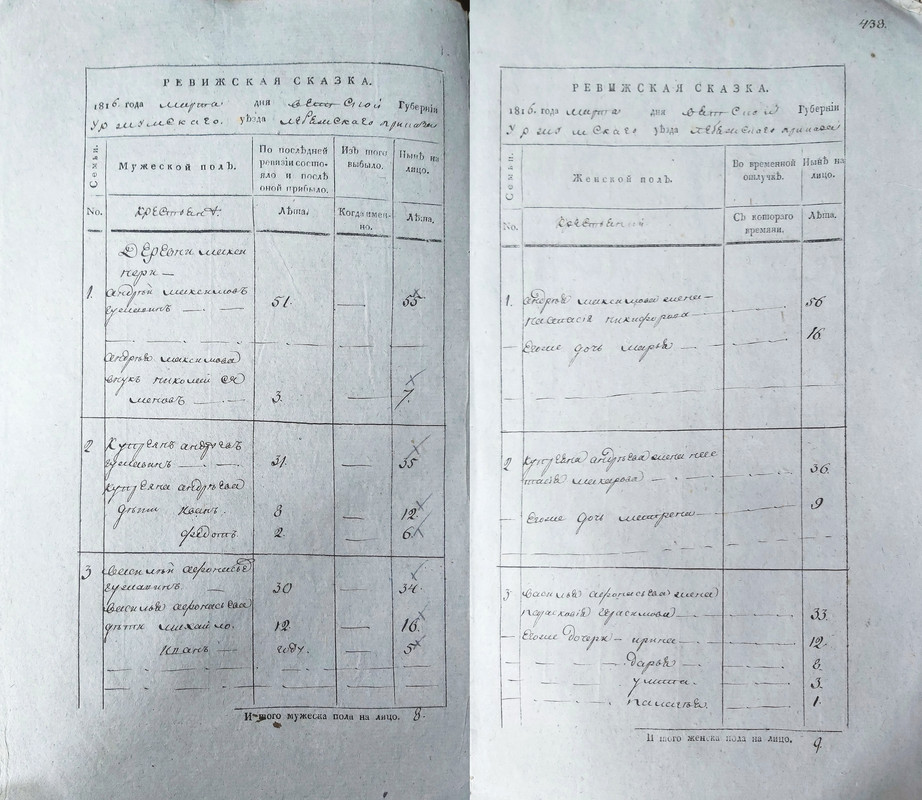 438.
РЕВИЖСКАЯ СКАЗКА.
1816. года марта дня вятской Губерніи
Уржумскаго. уѣзда
Семьи.
Мужеской полъ.
По послѣдней ревизіи состояло и послѣ оной прибыло.
Изъ того выбыло.
Нынѣ на лицо.
No.
Лѣта.
Когда имен-но.
Лѣта.
Деревни
1. андрѣй максимовъ
51. — 55
андрѣя максимова
внукъ николай се
меновъ — 3. — 7.
2 Купреянъ андреевъ
31. — 35
купреяна андрѣева
дѣти иванъ. 8 — 12
федотъ. 2. — 6
3 василей афонасьев
30 — 34.
василья афонасьева
дѣти михайло. 12. — 16
иванъ — году. — 5
И того мужеска пола на лицо. 8.
РЕВИЖСКАЯ СКАЗКА.
1816. года марта дня вятской Губерніи
Уржумскаго уѣзда
Семьи.
Женской полъ.
Во временной отлучкѣ.
Нынѣ на лицо.
No.
Съ котораго времяни.
Лѣта.
1. андрѣя максимова жена —
настасія никифорова 56
Егоже дочь марья 16
2 купреяна андрѣева жена
макарова — 36.
Егоже дочь матрена 9
3 василья афонасьева жена
парасковія герасимова 33.
Егоже дочери — ирина 12
дарья 8.
улита. 3.
палагѣя. 1.
И того женска пола на лицо. 9